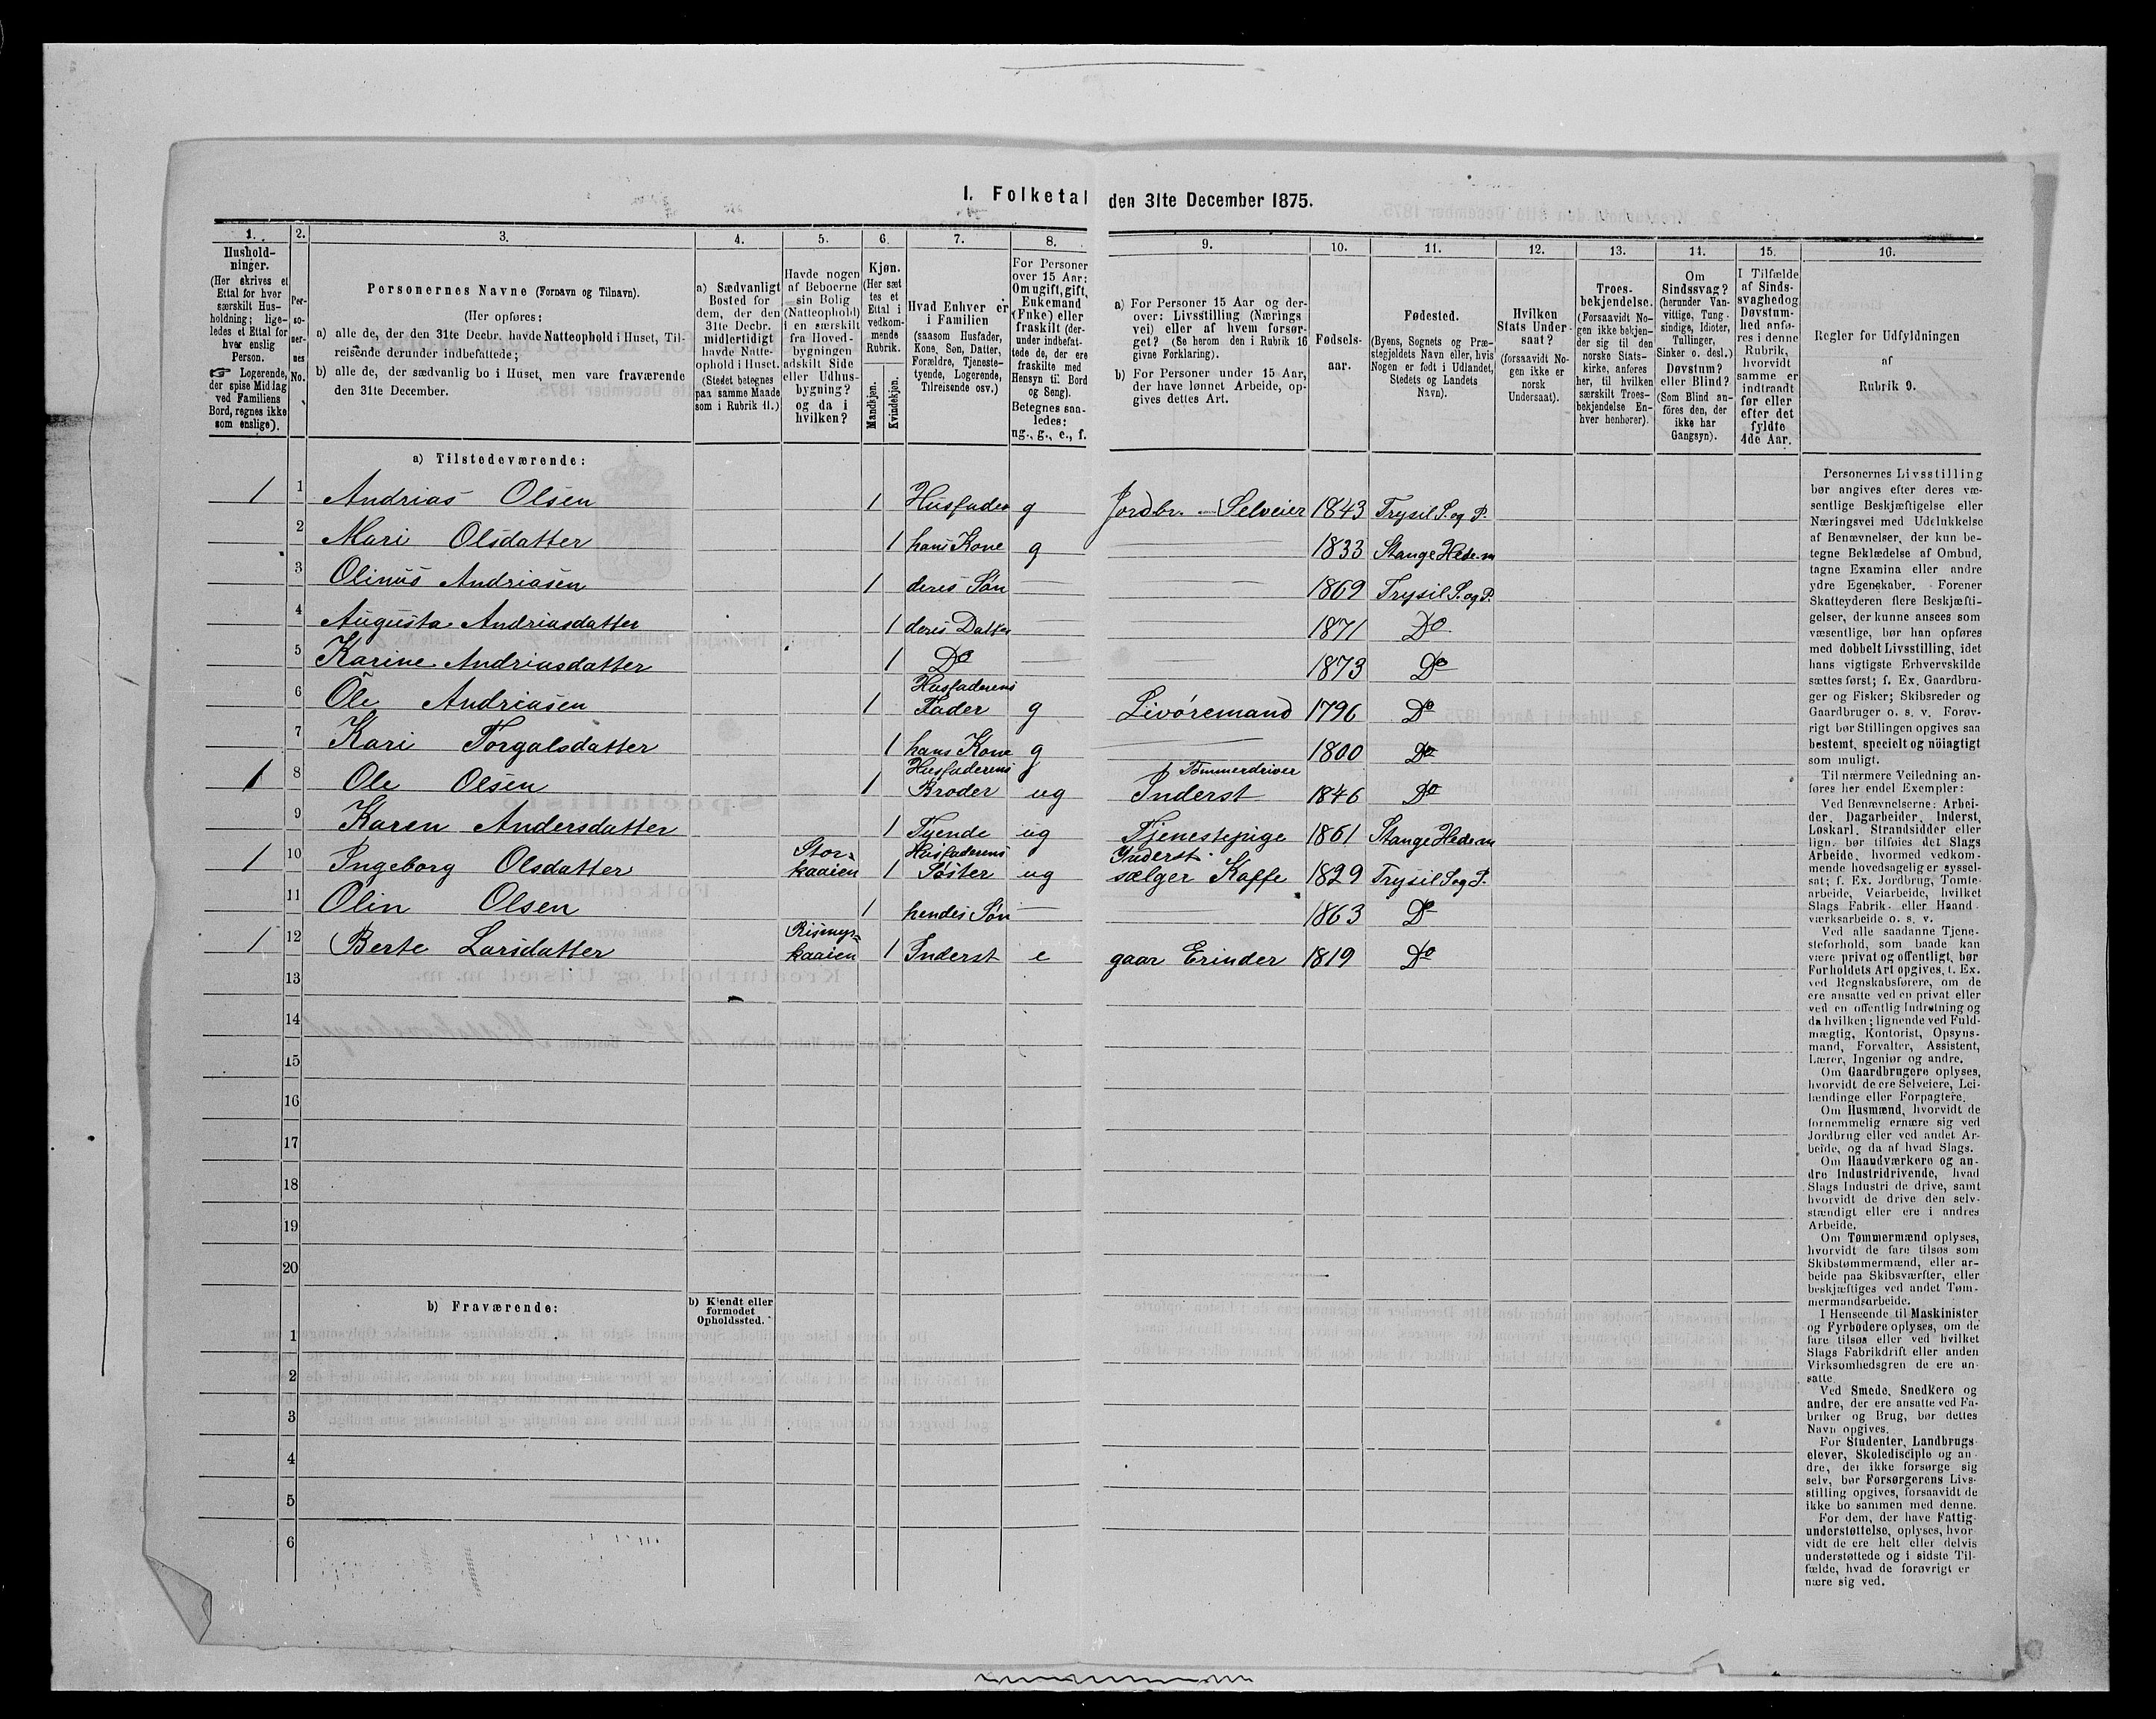 I. Folketal den 31te December 1875.
1.
Hushold-
ninger.
(Her skrives et
Ettal for hver
særskilt Hus-
holdning; lige-
ledes et Ettal for
hver enslig
Person.
☞ Logerende,
der spise Middag
ved Familiens
Bord, regnes ikke
som enslige).
2.
Per-
so-
ner-
nes
No.
3.
Personernes Navne (Fornavn og Tilnavn).
(Her opføres:
a) alle de, der den 31te Decbr. havde Natteophold i Huset, Til-
reisende derunder indbefattede;
b) alle de, der sædvanlig bo i Huset, men vare fraværende
den 31te December.
4.
a) Sædvanligt
Bosted for
dem, der den
31te Decbr.
midlertidigt
havde Natte-
ophold i Huset.
(Stedet betegnes
paa samme Maade
som i Rubrik 11.)
5.
Havde nogen
af Beboerne
sin Bolig
(Natteophold)
i en særskilt
fra Hoved-
bygningen
adskilt Side
eller Udhus-
bygning?
og da i
hvilken?
6.
Kjøn.
(Her sæt
tes et
Ettal i
vedkom-
mende
Rubrik.
Mandkjøn.
Kvindekjøn.
7.
Hvad Enhver er
i Familien
(saasom Husfader,
Kone, Søn, Datter,
Forældre, Tjeneste-
tyende, Logerende,
Tilreisende osv.)
8.
For Personer
over 15 Aar:
Om ugift, gift,
Enkemand
(Enke) eller
fraskilt (der-
under indbefat-
tede de, der ere
fraskilte med
Hensyn til Bord
og Seng).
Betegnes saa-
ledes:
ug., g., e., f.
9.
a) For Personer 15 Aar og der-
over: Livsstilling (Nærings
vei) eller af hvem forsør-
get? (Se herom den i Rubrik 16
givne Forklaring).
b) For Personer under 15 Aar,
der have lønnet Arbeide, op-
gives dettes Art.
10.
Fødsels-
aar.
11.
Fødested.
(Byens, Sognets og Præ-
stegjeldets Navn eller, hvis
Nogen er født i Udlandet,
Stedets og Landets
Navn).
12.
Hvilken
Stats Under-
saat?
(forsaavidt No-
gen ikke er
norsk
Undersaat).
13.
Troes-
bekjendelse.
(Forsaavidt No-
gen ikke bekjen-
der sig til den
norske Stats-
kirke, anføres
her, til hvilken
særskilt Troes-
bekjendelse En-
hver henhører).
14.
Om
Sindssvag?
(herunder Van-
vittige, Tung-
sindige, Idioter,
Tullinger,
Sinker o. desl.)
Døvstum?
eller Blind?
(Som Blind an-
føres den, der
ikke har
Gangsyn).
15.
I Tilfælde
af Sinds-
svaghed og
Døvstum-
hed anfø-
res i denne
Rubrik,
hvorvidt
samme er
indtraadt
før eller
efter det
fyldte
4de Aar.
16.
Regler for Udfyldningen
af
Rubrik 9.
a) Tilstedeværende:
1 1 Andrias Olsen 1 Husfader g Jordbr. Selveier 1843 Trysil S. og P.
2 Mari Olsdatter 1 hans Kone g 1833 Stange Hedem
3 Olinus Andriasen 1 deres Søn 1869 Trysil S. og P.
4 Augusta Andriasdatter 1 deres Datter 1871 Do
5 Karine Andriasdatter 1 Do 1873 Do
6 Ole Andriasen 1 Husfaderens Fader g Livøremand 1796 Do
7 Kari Torgalsdatter 1 hans Kone g 1800 Do
1 8 Ole Olsen 1 Husfaderens Broder ug Tømmerdriver Inderst 1846 Do
9 Karen Andersdatter 1 Tyende ug Tjenestepige 1861 Stange Hedem
1 10 Ingeborg Olsdatter Stor-kaaien 1 Husfaderens Søster ug Inderst sælger Kaffe 1829 Trysil S. og P.
11 Olin Olsen 1 hendes Søn 1863 Do
1 12 Berte Larsdatter kaaien 1 Inderst e gaar Erinder 1819 Do
13
14
15
16
17
18
19
20
b) Fraværende:
b) Kjendt eller
formodet
Opholdssted.
1
2
3
4
5
6
Personernes Livsstilling
bør angives efter deres væ-
sentlige Beskjæftigelse eller
Næringsvei med Udelukkelse
af Benævnelser, der kun be-
tegne Beklædelse af Ombud,
tagne Examina eller andre
ydre Egenskaber. Forener
Skatteyderen flere Beskjæfti-
gelser, der kunne ansees som
væsentlige, bør han opføres
med dobbelt Livsstilling, idet
hans vigtigste Erhvervskilde
sættes først; f. Ex. Gaardbru-
ger og Fisker; Skibsreder og
Gaardbruger o. s. v. Forøv-
rigt bør Stillingen opgives saa
bestemt, specielt og nöiagtigt
som muligt.
Til nærmere Veiledning an-
føres her endel Exempler:
Ved Benævnelserne: Arbei-
der, Dagarbeider, Inderst,
Løskarl, Strandsidder eller
lign. bør tilføies det Slags
Arbeide, hvormed vedkom-
mende hovedsagelig er syssel-
sat; f. Ex. Jordbrug, Tomte-
arbeide, Veiarbeide, hvilket
Slags Fabrik- eller Haand-
værksarbeide o. s. v.
Ved alle saadanne Tjene-
steforhold, som baade kan
være privat og offentligt, bør
Forholdets Art opgives, f. Ex.
ved Regnskabsførere, om de
ere ansatte ved en privat eller
ved en offentlig Indretning og
da hvilken; lignende ved Fuld-
mægtig, Kontorist, Opsyns-
mand, Forvalter, Assistent,
Lærer, Ingeniør og andre.
Om Gaardbrugere oplyses,
hvorvidt de ere Selveiere, Lei-
lændinge eller Forpagtere.
Om Husmænd, hvorvidt de
fornemmelig ernære sig ved
Jordbrug eller ved andet Ar-
beide, og da af hvad Slags.
Om Haandværkere og an-
dre Industridrivende, hvad
Slags Industri de drive, samt
hvorvidt de drive den selv-
stændigt eller ere i andres
Arbeide.
Om Tømmermænd oplyses,
hvorvidt de fare tilsøs som
Skibstømmermænd, eller ar-
beide paa Skibsværfter, eller
beskjæftiges ved andet Tøm-
mermandsarbeide.
I Henseende til Maskinister
og Fyrbødere oplyses, om de
fare tilsøs eller ved hvilket
Slags Fabrikdrift eller anden
Virksomhedsgren de ere an-
satte.
Ved Smede, Snedkere og
andre, der ere ansatte ved Fa-
briker og Brug, bør dettes
Navn opgives.
For Studenter, Landbrugs-
elever, Skoledisciple og an-
dre, der ikke forsørge sig
selv, bør Forsørgerens Livs-
stilling opgives, forsaavidt de
ikke bo sammen med denne.
For dem, der have Fattig-
understøttelse, oplyses, hvor-
vidt de ere helt eller delvis
understøttede og i sidste Til-
fælde, hvad de forøvrigt er-
nære sig ved.